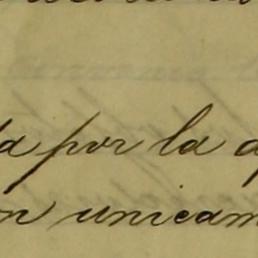 a por la a
n unicam